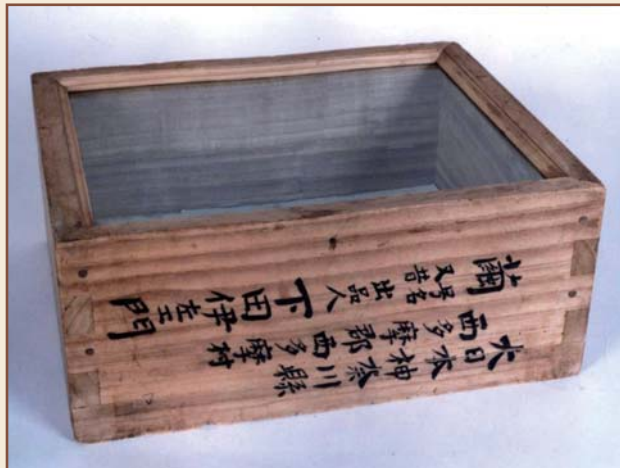 大日本神奈川縣
西多摩郡西多摩村
出品人 下田伊左エ門
繭 号名 又昔